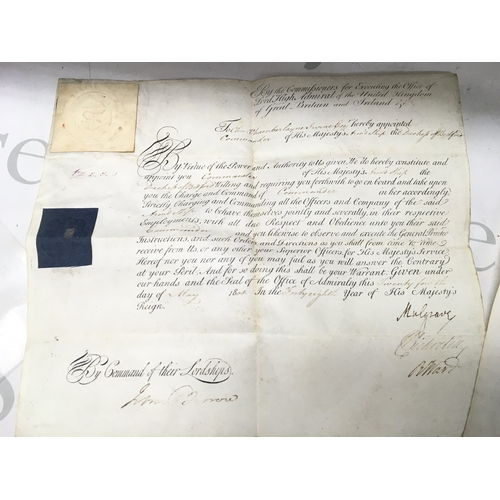 By the Commissioners for Executing the Office of
Lord High Admiral of the United Kingdom
of Great Britain and Ireland &c
To hereby appointed
Commander of His Majesty's the
By Virtue of the Power and Authority to Us given We do hereby constitute and
appoint you Commander of His Majesty's the
Willing and requiring you forthwith to go on board and take upon
you the Charge and Command of Commander in her accordingly.
Strictly Charging and Commanding all the Officers and Company of the said
to behave themselves jointly and severally, in their respective
Employments, with all due Respect and Obedience unto you their said
Commander and you likewise to observe and execute the General Printed
Instructions, and such Orders and Directions as you shall from time to time
receive from Us, or any other your Superior Officers for His Majesty's Service
Hereof nor you nor any of you may fail as you will answer the Contrary
at your Peril. And for so doing this shall be your Warrant. Given under
our hands and the Seal of the Office of Admiralty this
day of May In the Forty eighth Year of His Majesty's
Reign.
Mulgrave
R Ward
By Command of their Lordships.